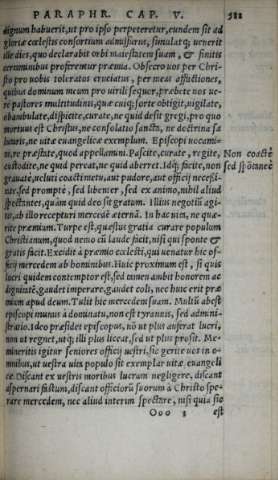 PARAPHR. CAP. V. 511
dignum habuerit, ut pro ipso perpeteretur, eundem sit ad
gloriæ cœlestis consortium admissurus, simulatq; uenerit
ille dies, quo declarabit orbi maiestatem suam, & finitis
ærumnibus proferentur præmia. Obsecro uos per Chri-
sto pro uobis toleratos cruciatus, per meas afflictiones,
quibus dominum meum pro uirili sequor, præbete uos ue-
re pastores multitudinis, quæ cuiq; sorte obtigit, uigilate,
obambulate, dispicite, curate, ne quid desit gregi, pro quo
mortuus est Christus, ne consolatio sancta, ne doctrina sa
lutaris, ne uitæ euangelicæ exemplum. Episcopi uocami-
ni, re præstate, quod appellamini. Pascite, curate, regite, Non coactè
custodite, ne quid pereat, ne quid aberret. Idq; facite, non sed spõtaneè
grauatè, ueluti coacti metu, aut pudore, aut officij necessi-
tate, sed promptè, sed libenter, sed ex animo, nihil aliud
spectantes, quàm quid deo sit gratum. Illius negotiũ agi-
tis, ab illo recepturi mercedẽ æternã. In hac uita, ne quæ-
rite præmium. Turpe est, quæstus gratia curare populum
Christianum, quod nemo cũ laude facit, nisi qui sponte &
gratis facit. Excidit à præmio cœlesti, qui uenatur hic of-
ficij mercedem ab hominibus. Huic proximum est, si quis
lucri quidem contemptor est, sed tamen ambit honorem ac
dignitatẽ, gaudet imperare, gaudet coli, nec huic erit præ
mium apud deum. Tulit hic mercedem suam. Multũ abest
episcopi munus à dominatu, non est tyrannis, sed admini-
stratio. Ideo præsidet episcopus, nõ ut plus auferat lucri,
non ut regnet, utq; illi plus liceat, sed ut plus prosit. Me-
mineritis igitur seniores officij uestri, sic gerite uos in o-
mnibus, ut uestra uita populo sit exemplar uitæ euangeli
cæ. Discant ex uestris moribus lucrum negligere, discant
aspernari fastum, discant officiorũ suorum à Christo spe-
rare mercedem, nec aliud interim spectare, nisi quia sic
Ooo 3 est